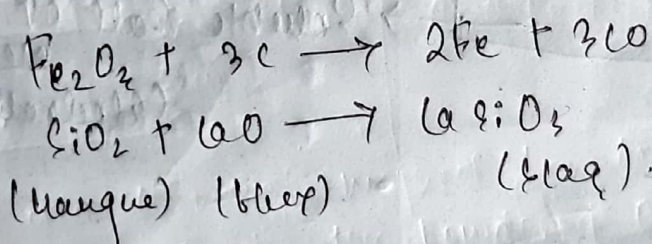 Fe₂O₃ + 3C → 2Fe + 3CO
SiO₂ + CaO → CaSiO₃
(Gangue) (flux) (slag).